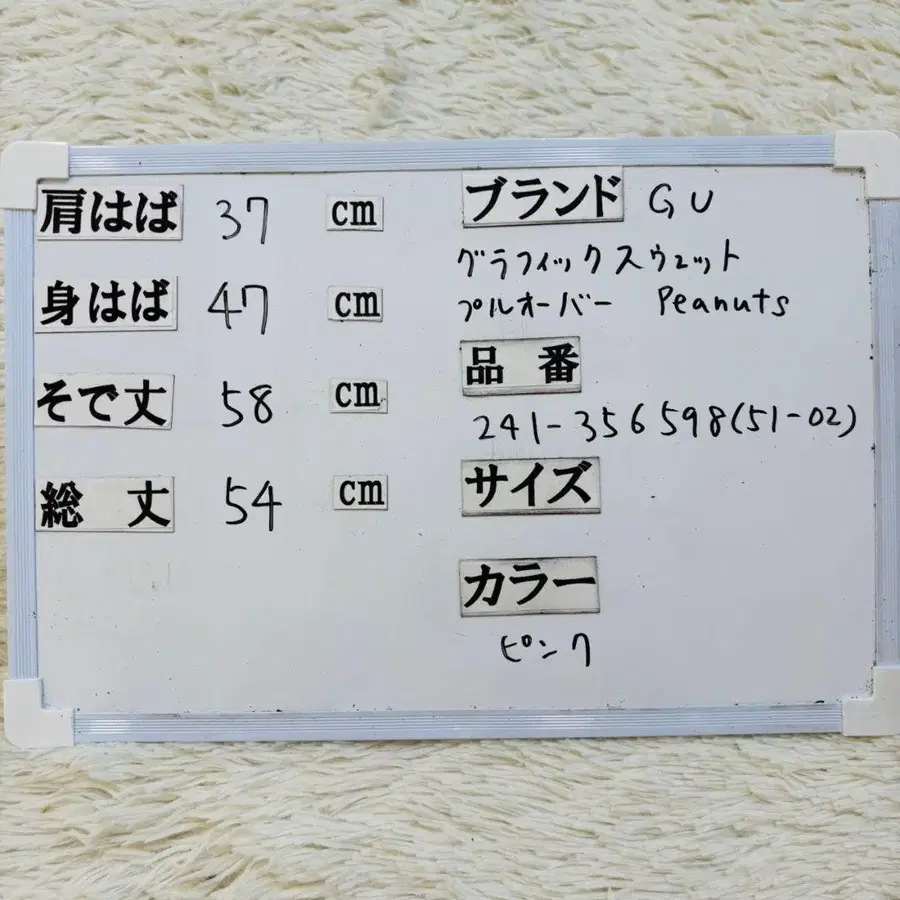 肩はば 37 cm
身はば 47 cm
そで丈 58 cm
総 丈 54 cm
ブランド GU
グラフィックスウェット
プルオーバー Peanuts
品 番
241-356598(51-02)
サイズ
カラー
ピンク